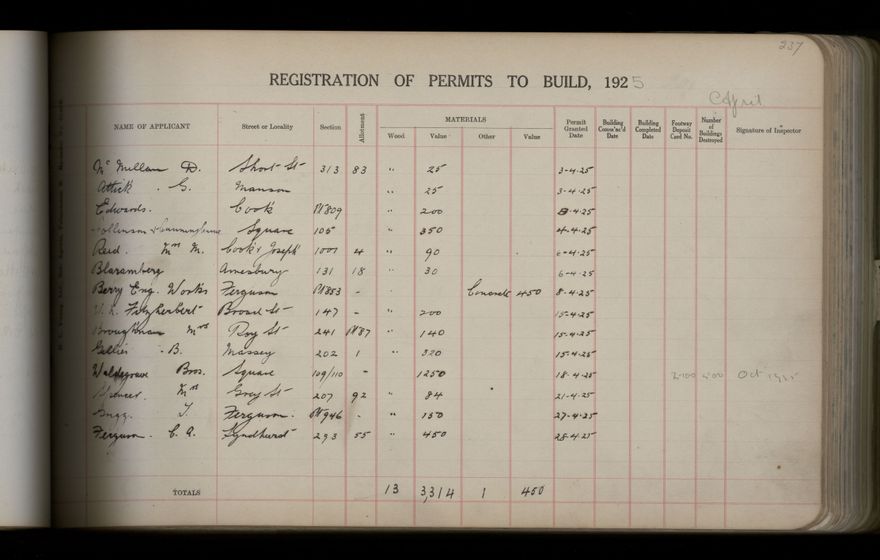 237
REGISTRATION OF PERMITS TO BUILD, 1925
April
NAME OF APPLICANT Street or Locality Section Allotment MATERIALS Permit Granted Date Building Comm'nc'd Date Building Completed Date Footway Deposit Card No. Number of Buildings Destroyed Signature of Inspector
Wood Value Other Value
Mc Millan D. Short St 313 83 " 25 3-4-25
Attick . G. Manson " 25 3-4-25
Edwards. Cook Pt 809 " 200 8-4-25
& Cunninghame Square 105 " 350 4-4-25
Reid. Mrs M. Cook & Joseph 1007 4 " 90 6-4-25
Blaramberg Amesbury 131 18 " 30 6-4-25
Berry Eng. Works Ferguson Pt 853 - Concrete 450 8-4-25
Fitzherbert Broad St 147 - " 200 15-4-25
Broughman Mrs Roy St 241 Pt 87 " 140 15-4-25
Gillies . B. Massey 202 1 " 320 15-4-25
Waldegrave Bros. Square 109/110 - 1250 18-4-25 Oct 1925
Spencer. Mrs Gray St 207 92 " 84 21-4-25
T. Ferguson. Pt 946 - " 150 27-4-25
Ferguson. C. A. Lyndhurst 293 55 " 450 28-4-25
TOTALS 13 3,314 1 450